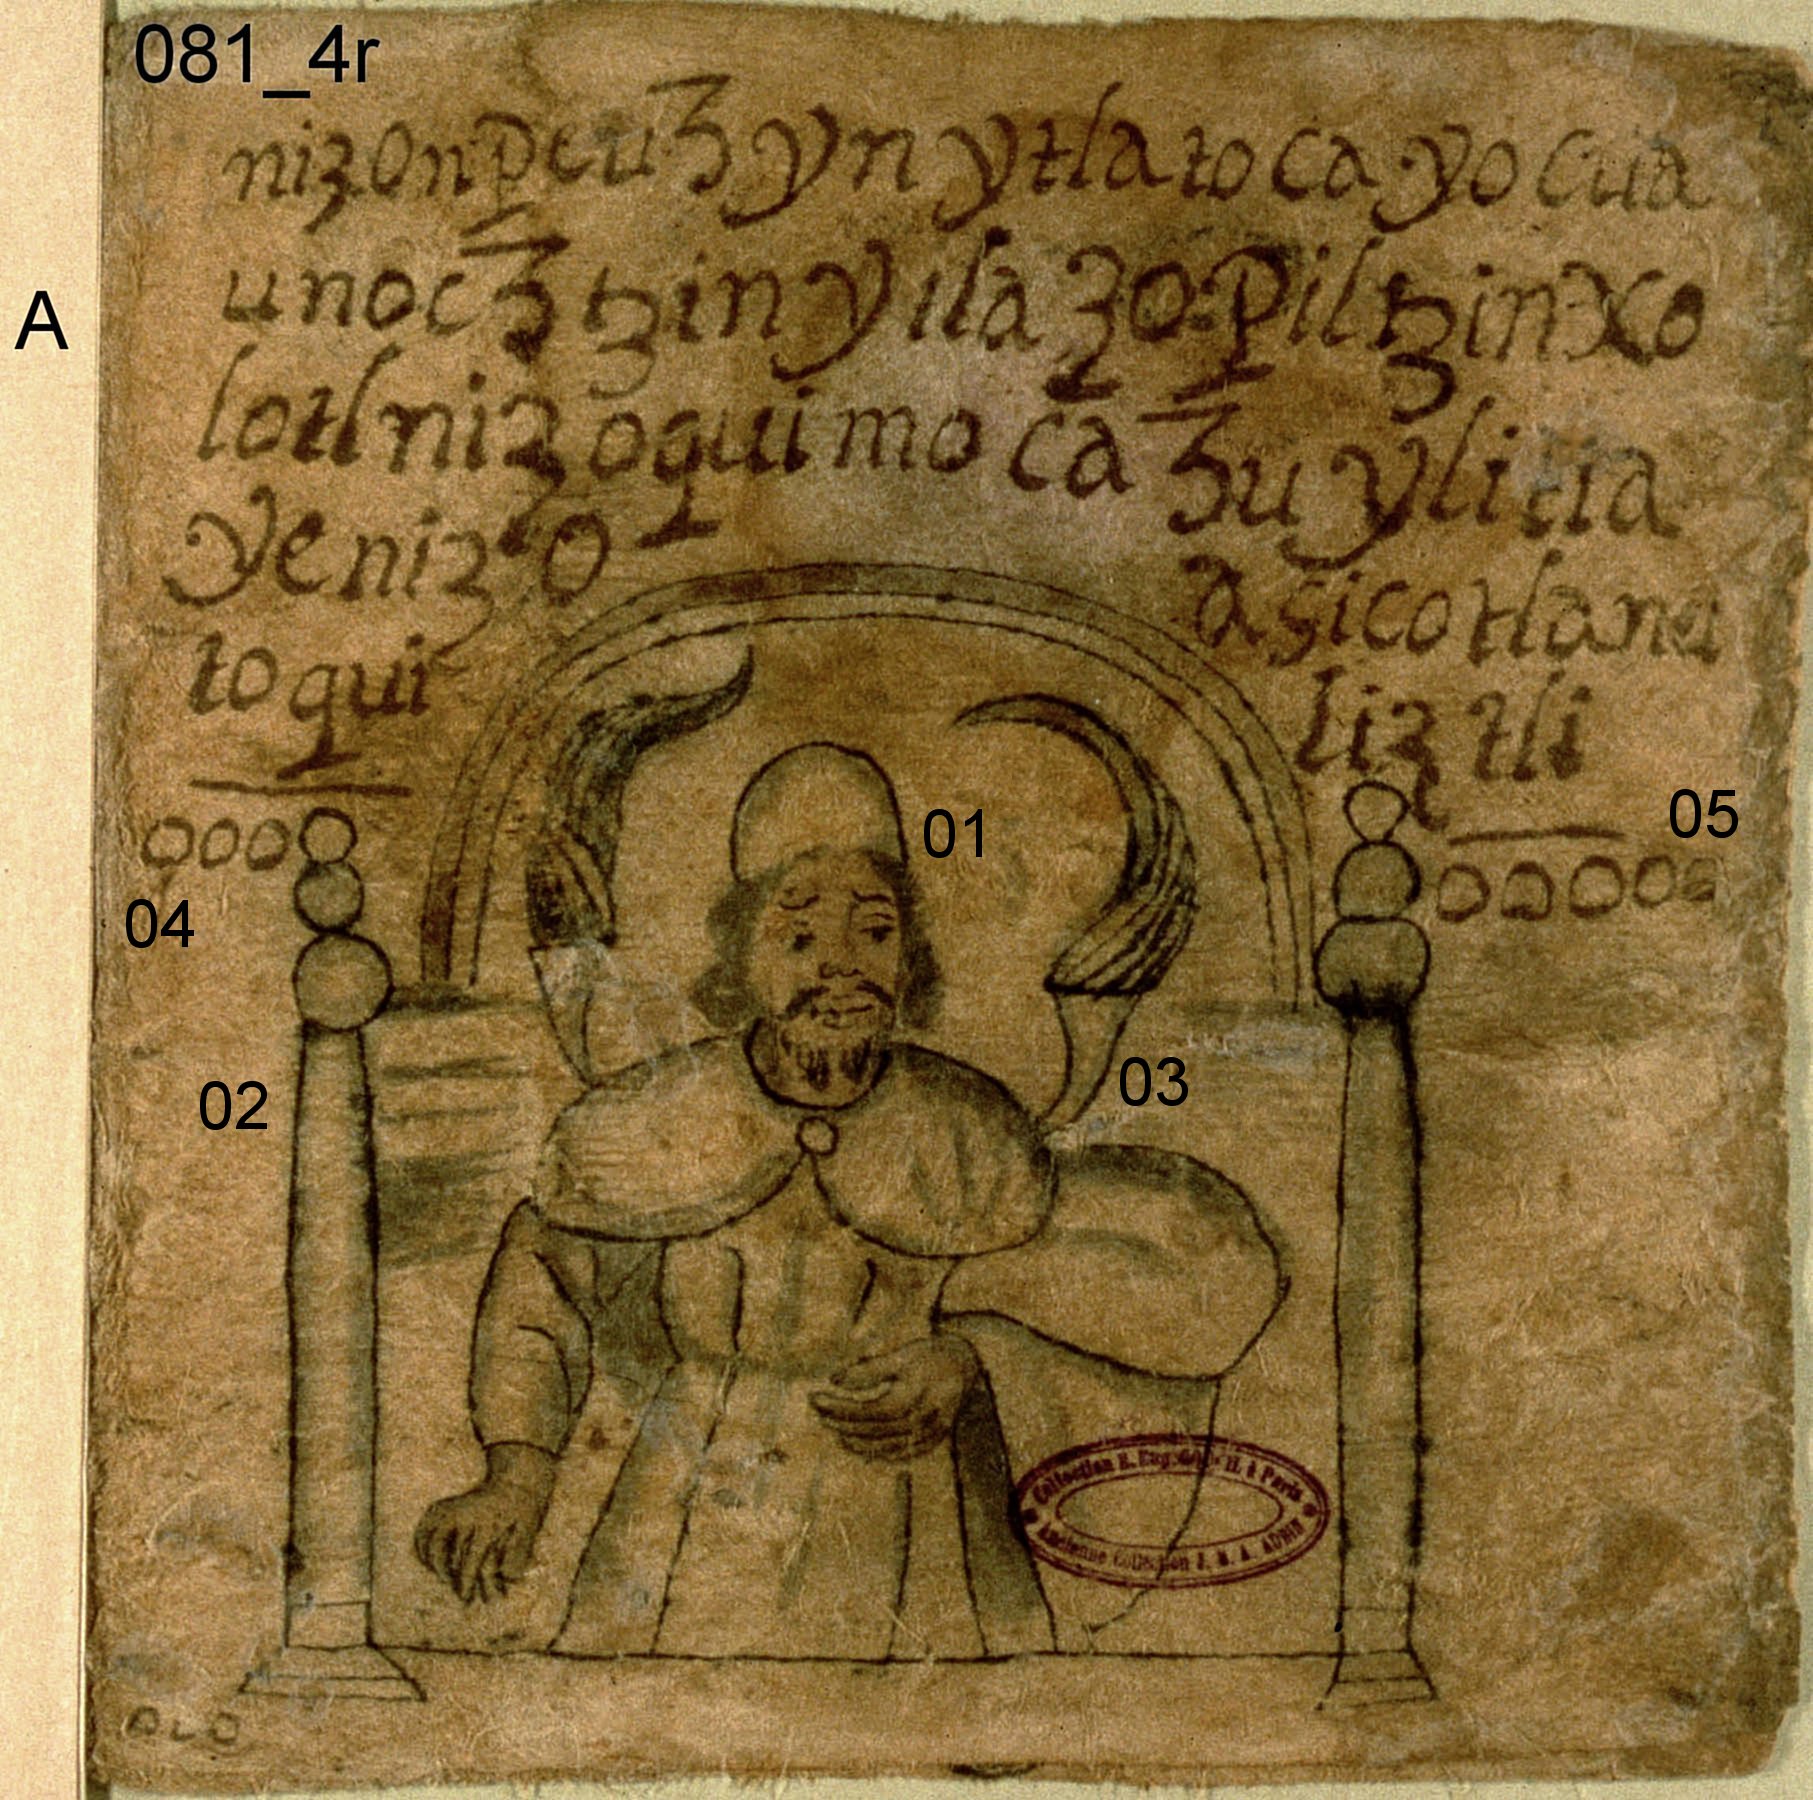 081_4r
nizonpeuh yn ytlatoca yo cua
unoc tzin ytlazo piltzin xo
lotl nizo quimoca hu ylitia
A
ye nizo
a sico tlane
to qui
liz tli
000
00000
01
02
03
04
05
Collection E. Eug. Goupil à Paris
Ancienne Collection J. M. A. AUBIN